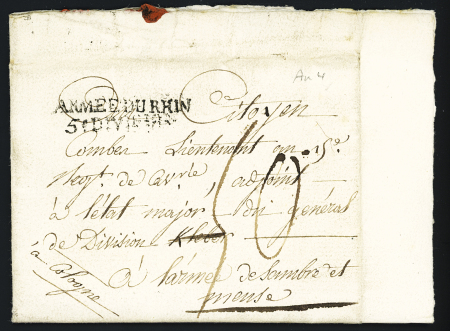 An 4
ARMÉE DU RHIN
5e DIVISION
Citoyen
Combes Lieutenant au 15e
Regt. de Cavrle, adjoint
à l'état major du général
de Division Kleber
à l'armée de Sambre et
meuse
à Cologne